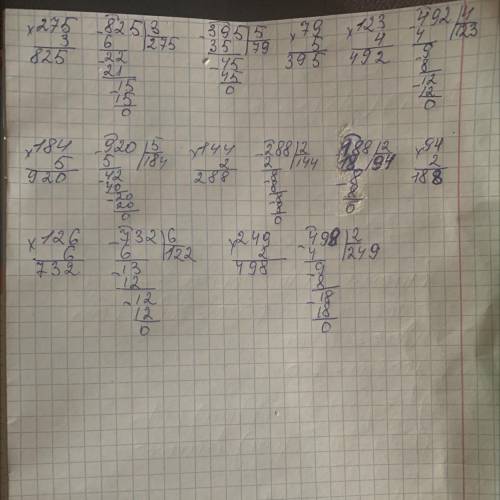 ×275 -825|3 -395|5 ×79 ×123 -492|4
3 6 |275 35 |79 5 4 4 |123
825 -22 -45 395 492 -9
21 45 8
-15 0 -12
15 12
0 0
×184 -920|5 ×144 -288|2 -188|2 ×94
5 5 |184 2 2 |144 18 |94 2
920 -42 288 -8 -8 188
40 8 8
-20 -8 0
20 8
0 0
×126 -732|6 ×249 -498|2
6 6 |122 2 4 |249
732 -13 498 -9
12 8
-12 -18
12 18
0 0